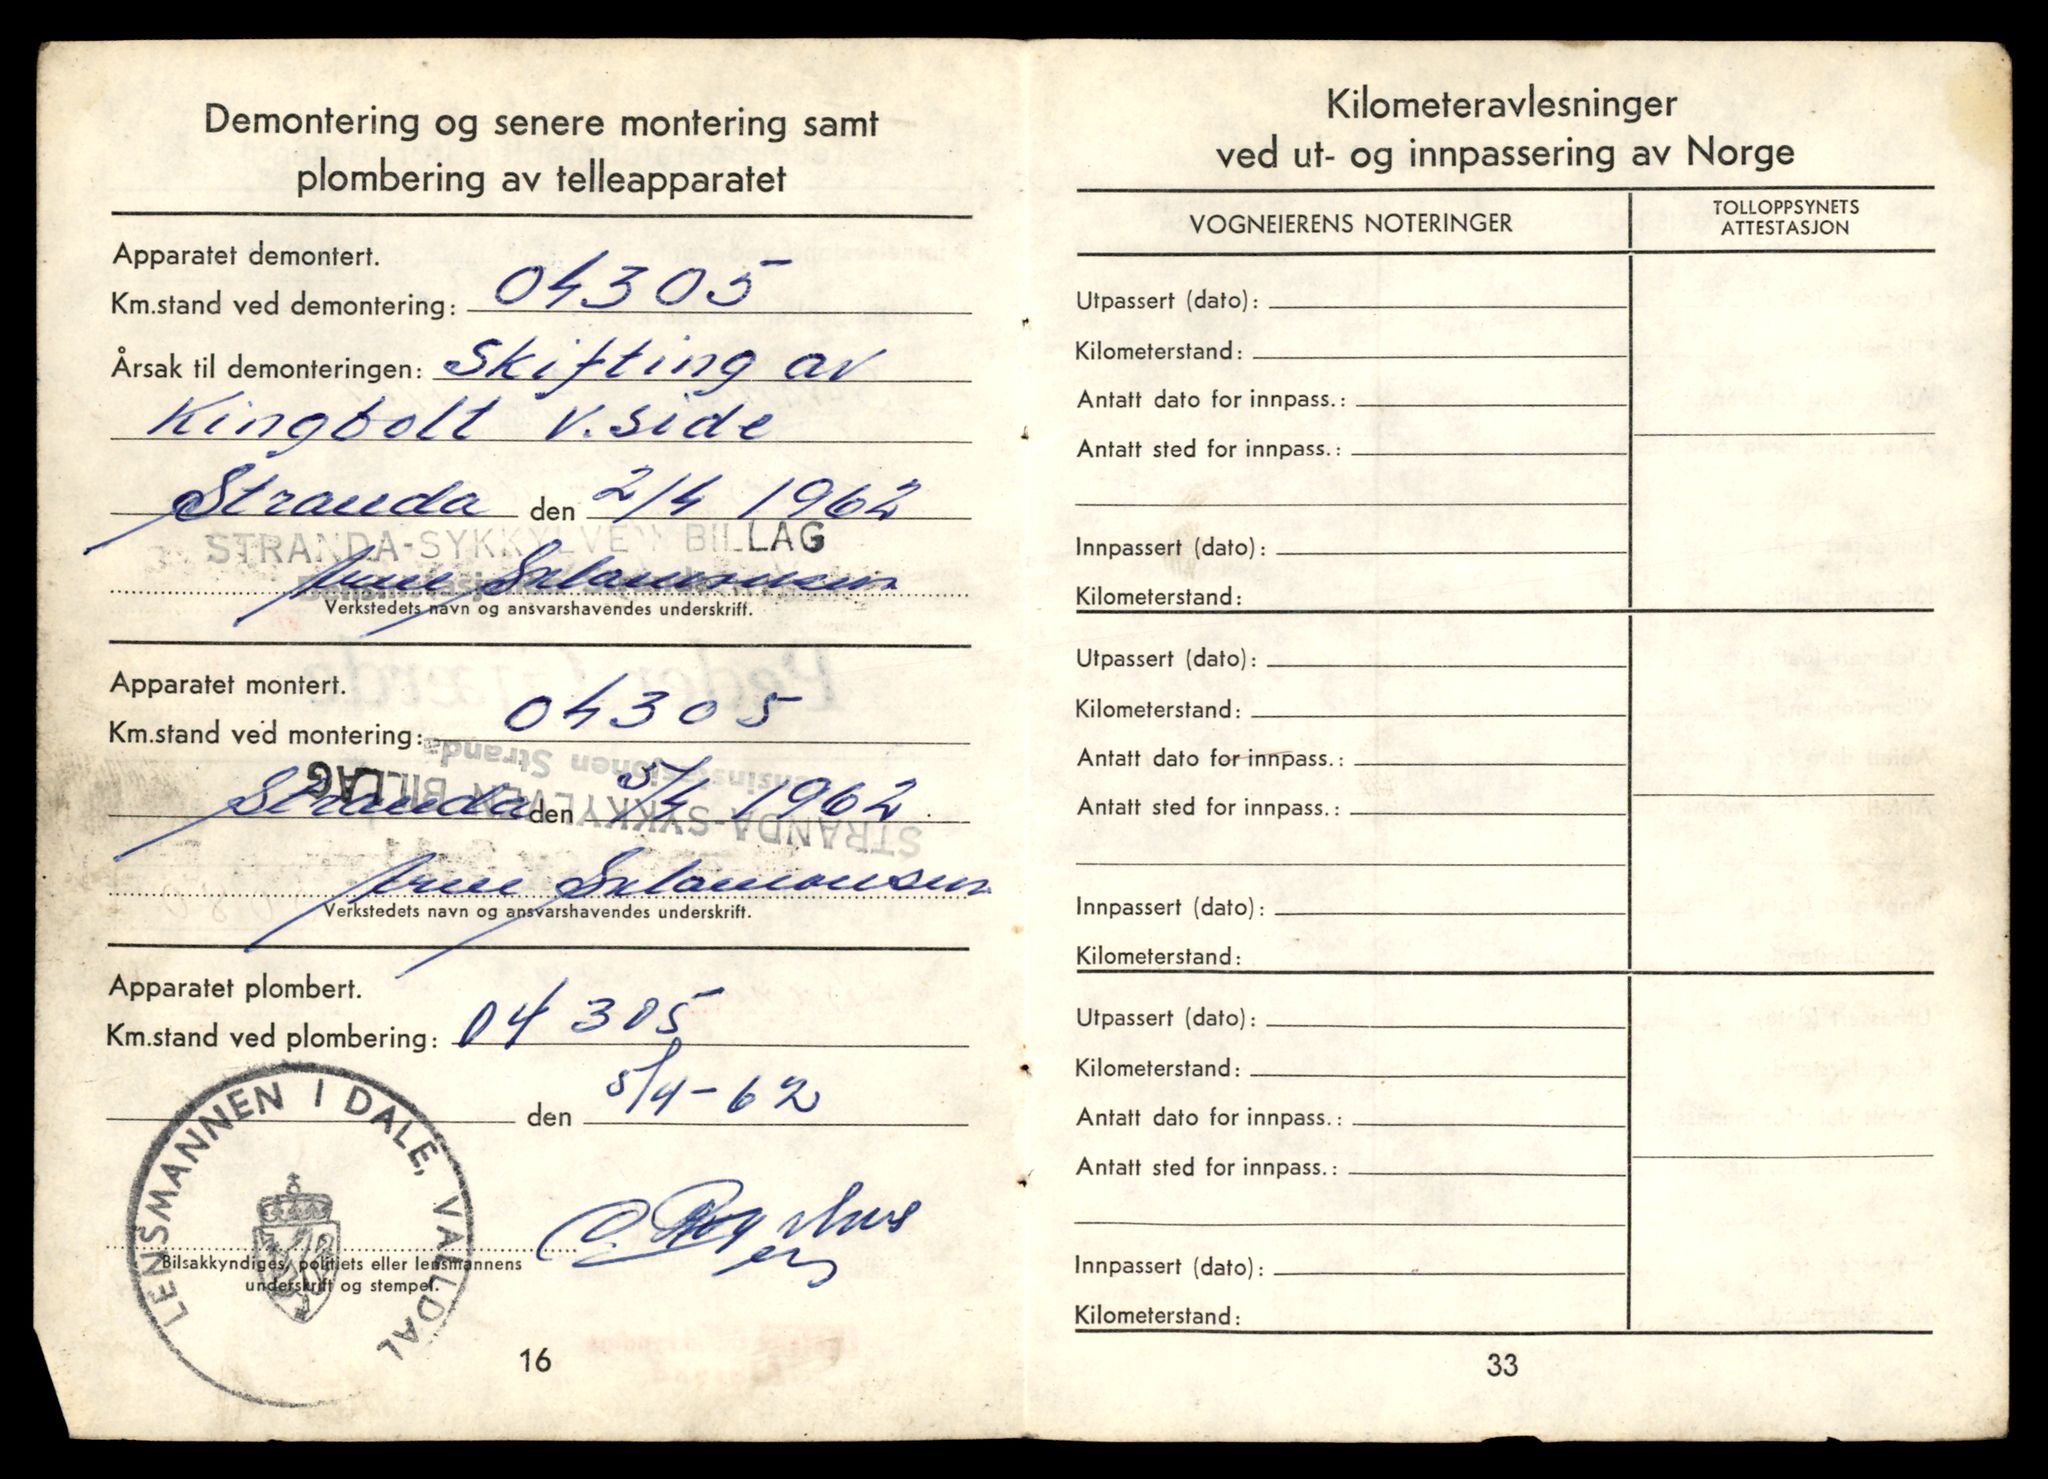 Demontering og senere montering samt
plombering av telleapparatet
Apparatet demontert.
Km.stand ved demontering: 04305
Årsak til demonteringen: Skifting av
Kingbolt v. side
Stranda den 2/4 1962
STRANDA-SYKKYLVEN BILLAG
Arne Salamonsen
Verkstedets navn og ansvarshavendes underskrift.
Apparatet montert.
Km.stand ved montering: 04305
Bensinstasjonen Stranda
STRANDA-SYKKYLVEN BILLAG
Stranda den 5/4 1962
Arne Salamonsen
Verkstedets navn og ansvarshavendes underskrift.
Apparatet plombert.
Km.stand ved plombering: 04305
den 5/4-62
LENSMANNEN I DALE, VALLDAL
Bilsakkyndiges, politiets eller lensmannens
underskrift og stempel.
16
Kilometeravlesninger
ved ut- og innpassering av Norge
VOGNEIERENS NOTERINGER
TOLLOPPSYNETS
ATTESTASJON
Utpassert (dato):
Kilometerstand:
Antatt dato for innpass.:
Antatt sted for innpass.:
Innpassert (dato):
Kilometerstand:
Utpassert (dato):
Kilometerstand:
Antatt dato for innpass.:
Antatt sted for innpass.:
Innpassert (dato):
Kilometerstand:
Utpassert (dato):
Kilometerstand:
Antatt dato for innpass.:
Antatt sted for innpass.:
Innpassert (dato):
Kilometerstand:
33